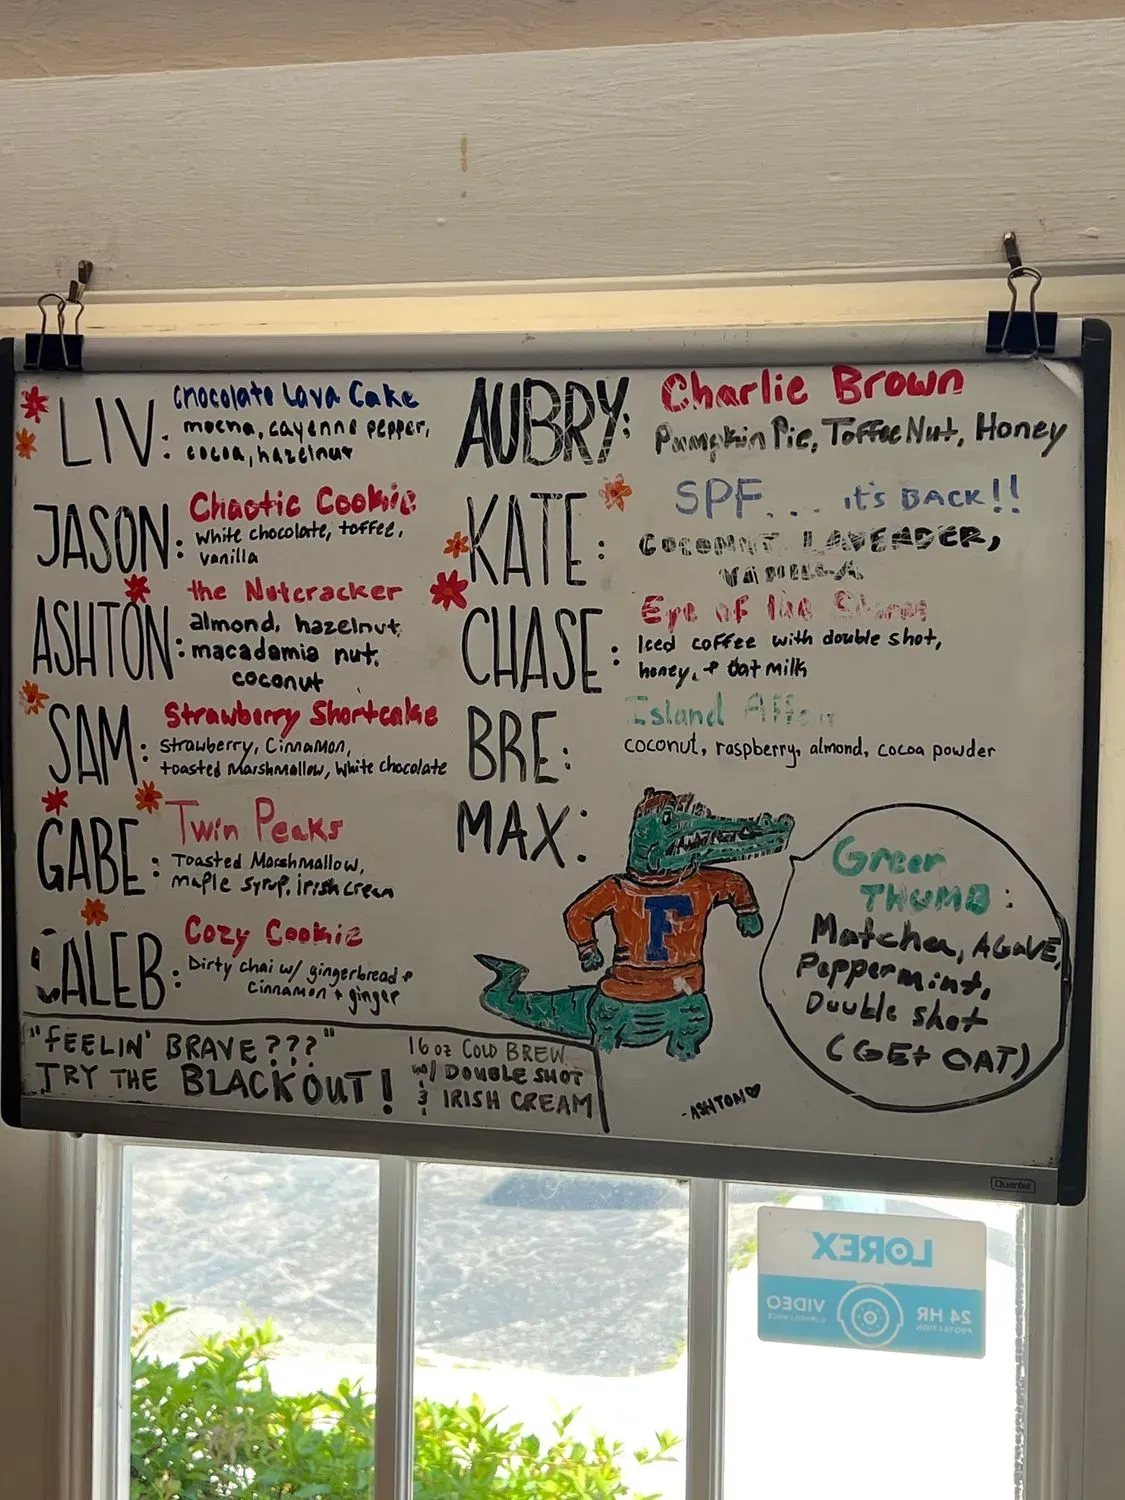 LIV: Chocolate Lava Cake
mocha, cayenne pepper,
cocoa, hazelnut
JASON: Chaotic Cookie
white chocolate, toffee,
vanilla
ASHTON: the Nutcracker
almond, hazelnut,
macadamia nut,
coconut
SAM: Strawberry Shortcake
Strawberry, Cinnamon,
toasted Marshmallow, white chocolate
GABE: Twin Peaks
Toasted Marshmallow,
maple syrup, irish cream
CALEB: Cozy Cookie
Dirty chai w/ gingerbread +
Cinnamon + ginger
"FEELIN' BRAVE???"
TRY THE BLACKOUT!
16oz COLD BREW
w/ DOUBLE SHOT
& IRISH CREAM
AUBRY: Charlie Brown
Pumpkin Pie, Toffee Nut, Honey
KATE: SPF... it's BACK!!
COCONUT, LAVENDER,
VANILLA
CHASE: Eye of the Storm
Iced coffee with double shot,
honey, + oat milk
BRE: Island Affair
coconut, raspberry, almond, cocoa powder
MAX:
F
Green
THUMB:
Matcha, AGAVE,
Peppermint,
Double shot
(GET OAT)
-ASHTON♡
Quartet
LOREX
24 HR VIDEO
PROTECTION SURVEILLANCE